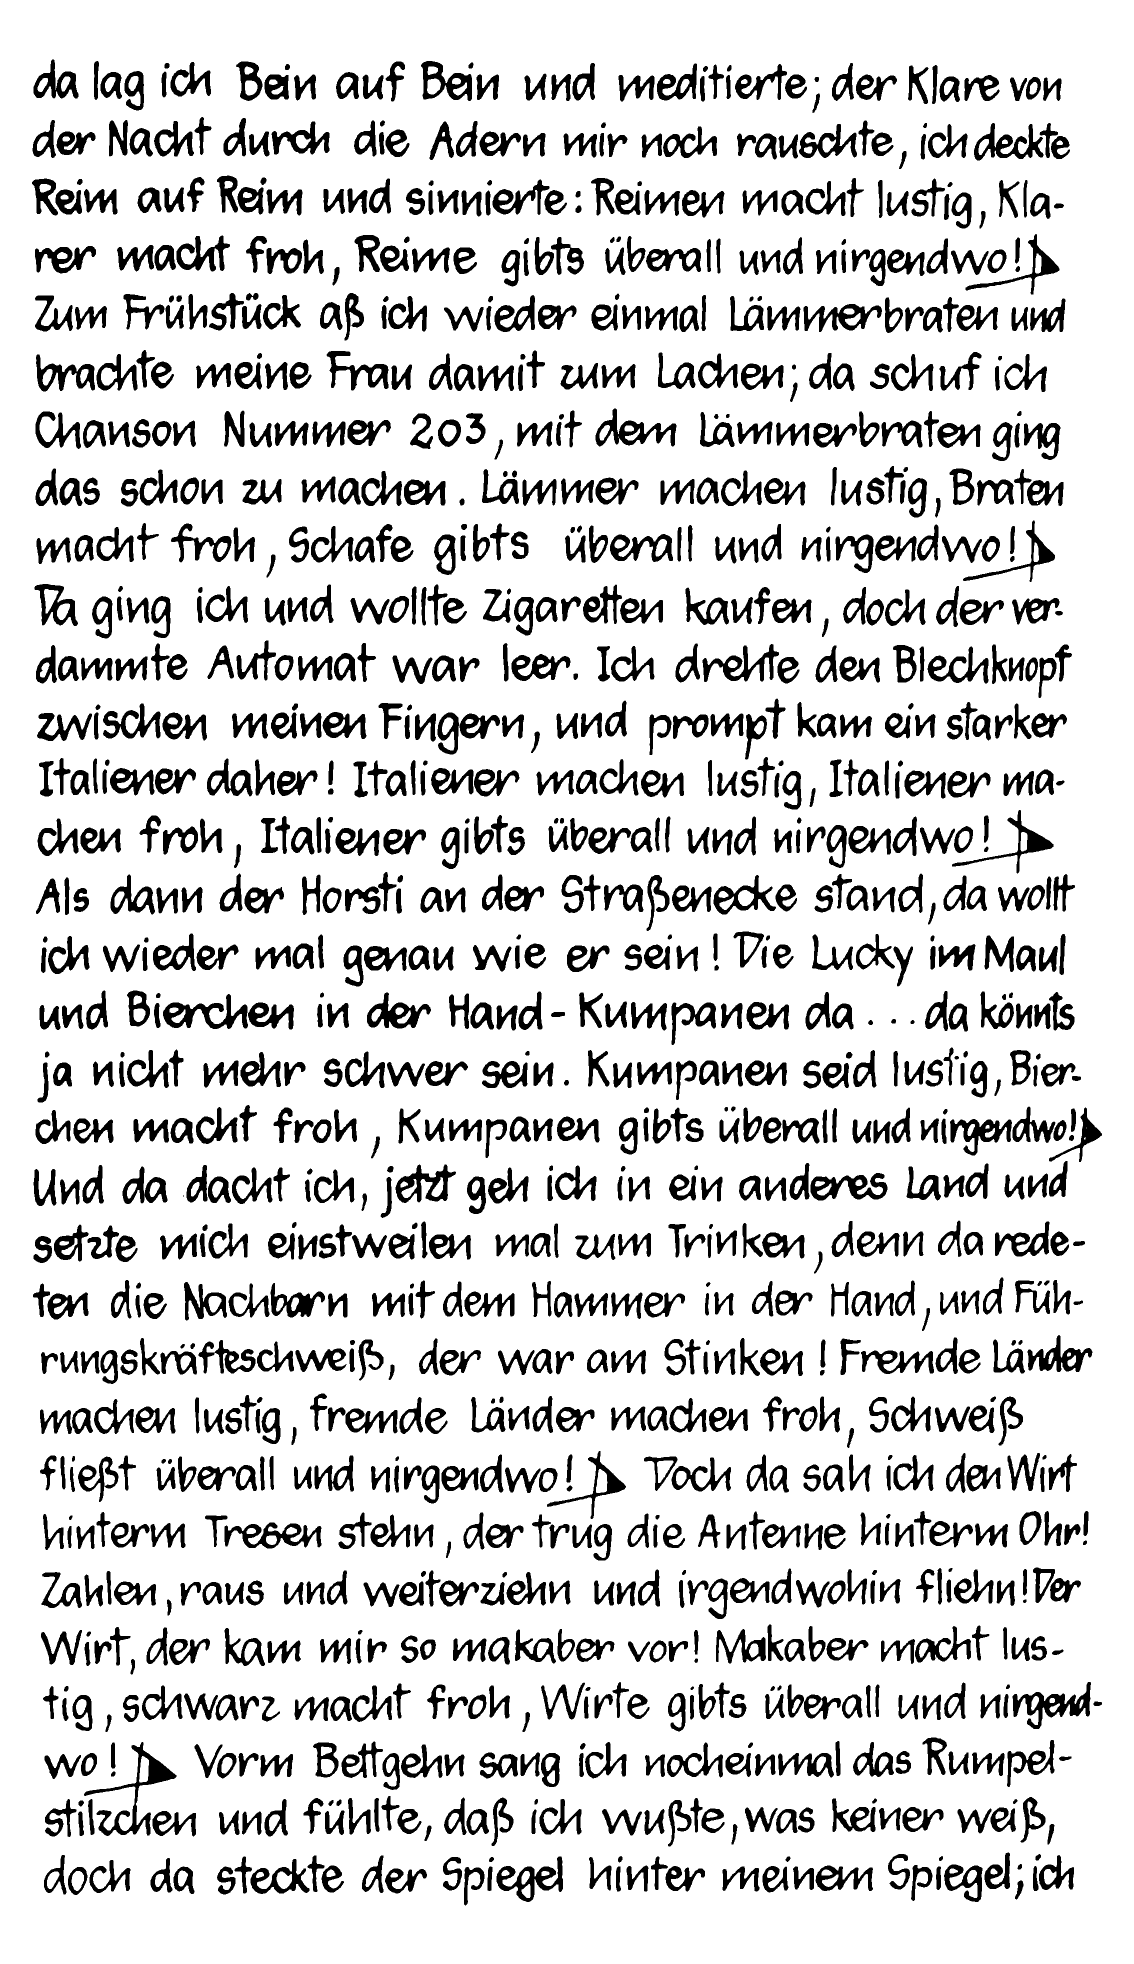 da lag ich Bein auf Bein und meditierte; der Klare von
der Nacht durch die Adern mir noch rauschte, ich deckte
Reim auf Reim und sinnierte: Reimen macht lustig, Kla-
rer macht froh, Reime gibts überall und nirgendwo!
Zum Frühstück aß ich wieder einmal Lämmerbraten und
brachte meine Frau damit zum Lachen; da schuf ich
Chanson Nummer 203, mit dem Lämmerbraten ging
das schon zu machen. Lämmer machen lustig, Braten
macht froh, Schafe gibts überall und nirgendwo!
Da ging ich und wollte Zigaretten kaufen, doch der ver-
dammte Automat war leer. Ich drehte den Blechknopf
zwischen meinen Fingern, und prompt kam ein starker
Italiener daher! Italiener machen lustig, Italiener ma-
chen froh, Italiener gibts überall und nirgendwo!
Als dann der Horsti an der Straßenecke stand, da wollt
ich wieder mal genau wie er sein! Die Lucky im Maul
und Bierchen in der Hand - Kumpanen da . . . da könnts
ja nicht mehr schwer sein. Kumpanen seid lustig, Bier-
chen macht froh, Kumpanen gibts überall und nirgendwo!
Und da dacht ich, jetzt geh ich in ein anderes Land und
setzte mich einstweilen mal zum Trinken, denn da rede-
ten die Nachbarn mit dem Hammer in der Hand, und Füh-
rungskräfteschweiß, der war am Stinken! Fremde Länder
machen lustig, fremde Länder machen froh, Schweiß
fließt überall und nirgendwo! Doch da sah ich den Wirt
hinterm Tresen stehn, der trug die Antenne hinterm Ohr!
Zahlen, raus und weiterziehn und irgendwohin fliehn! Der
Wirt, der kam mir so makaber vor! Makaber macht lus-
tig, schwarz macht froh, Wirte gibts überall und nirgend-
wo! Vorm Bettgehn sang ich nocheinmal das Rumpel-
stilzchen und fühlte, daß ich wußte, was keiner weiß,
doch da steckte der Spiegel hinter meinem Spiegel; ich